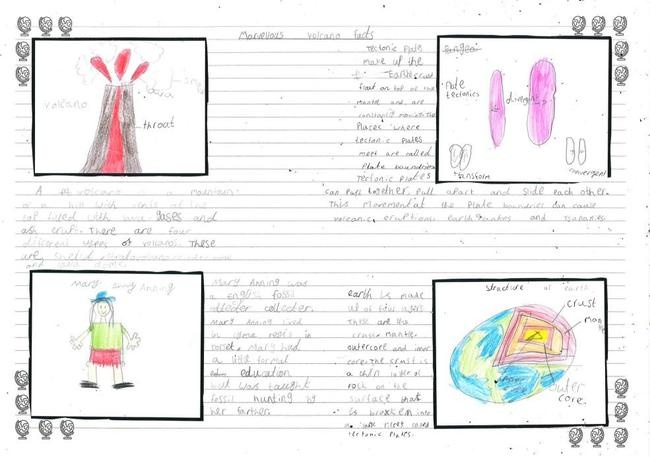 Marvellous volcano facts
lava
volcano
throat
tectonic Plate
make up the
Earths crust
float on top of the
mantel and are
constantly moving the
Places where
tectonic plates
meet are called
Plate boundries
Tectonic Plates
can Push together, Pull apart and slide each other.
This movement at the Plate boundries can cause
volcanic eruptions earth quakes and Tsunamies
Plate
tectonics
divergent
transform
convergent
A volcano is a mountain
or a hill with vents at the
top lined with lava gases and
ash erupt. There are four
different types of volcano. These
are shield
and lava domes
Mary Anning
Mary Anning was
a english fossil
collecter.
Mary Anning lived
in lyme regis in
dorset. Mary had
a little formal
education
but was taught
fossil hunting by
her farther.
earth is made
up of four layers
These are the
crust mantle
outercore and inner
core. the crust is
a thin layer of
rock on the
surface that
is brocken into
called
tectonic Plates.
structure of earth
crust
mantle
outer
core.